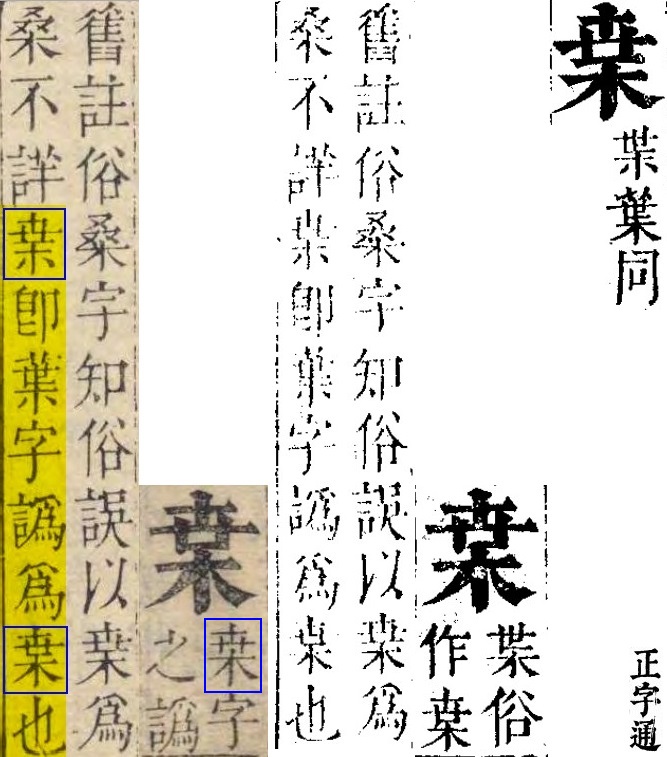 桒
枼葉同
正字通
桒
枼俗
作桒
舊註俗桑字知俗誤以桒爲
桑不詳枼卽葉字譌爲桒也
桒
桒字
之譌
舊註俗桑字知俗誤以桒爲
桑不詳桒卽葉字譌爲桒也